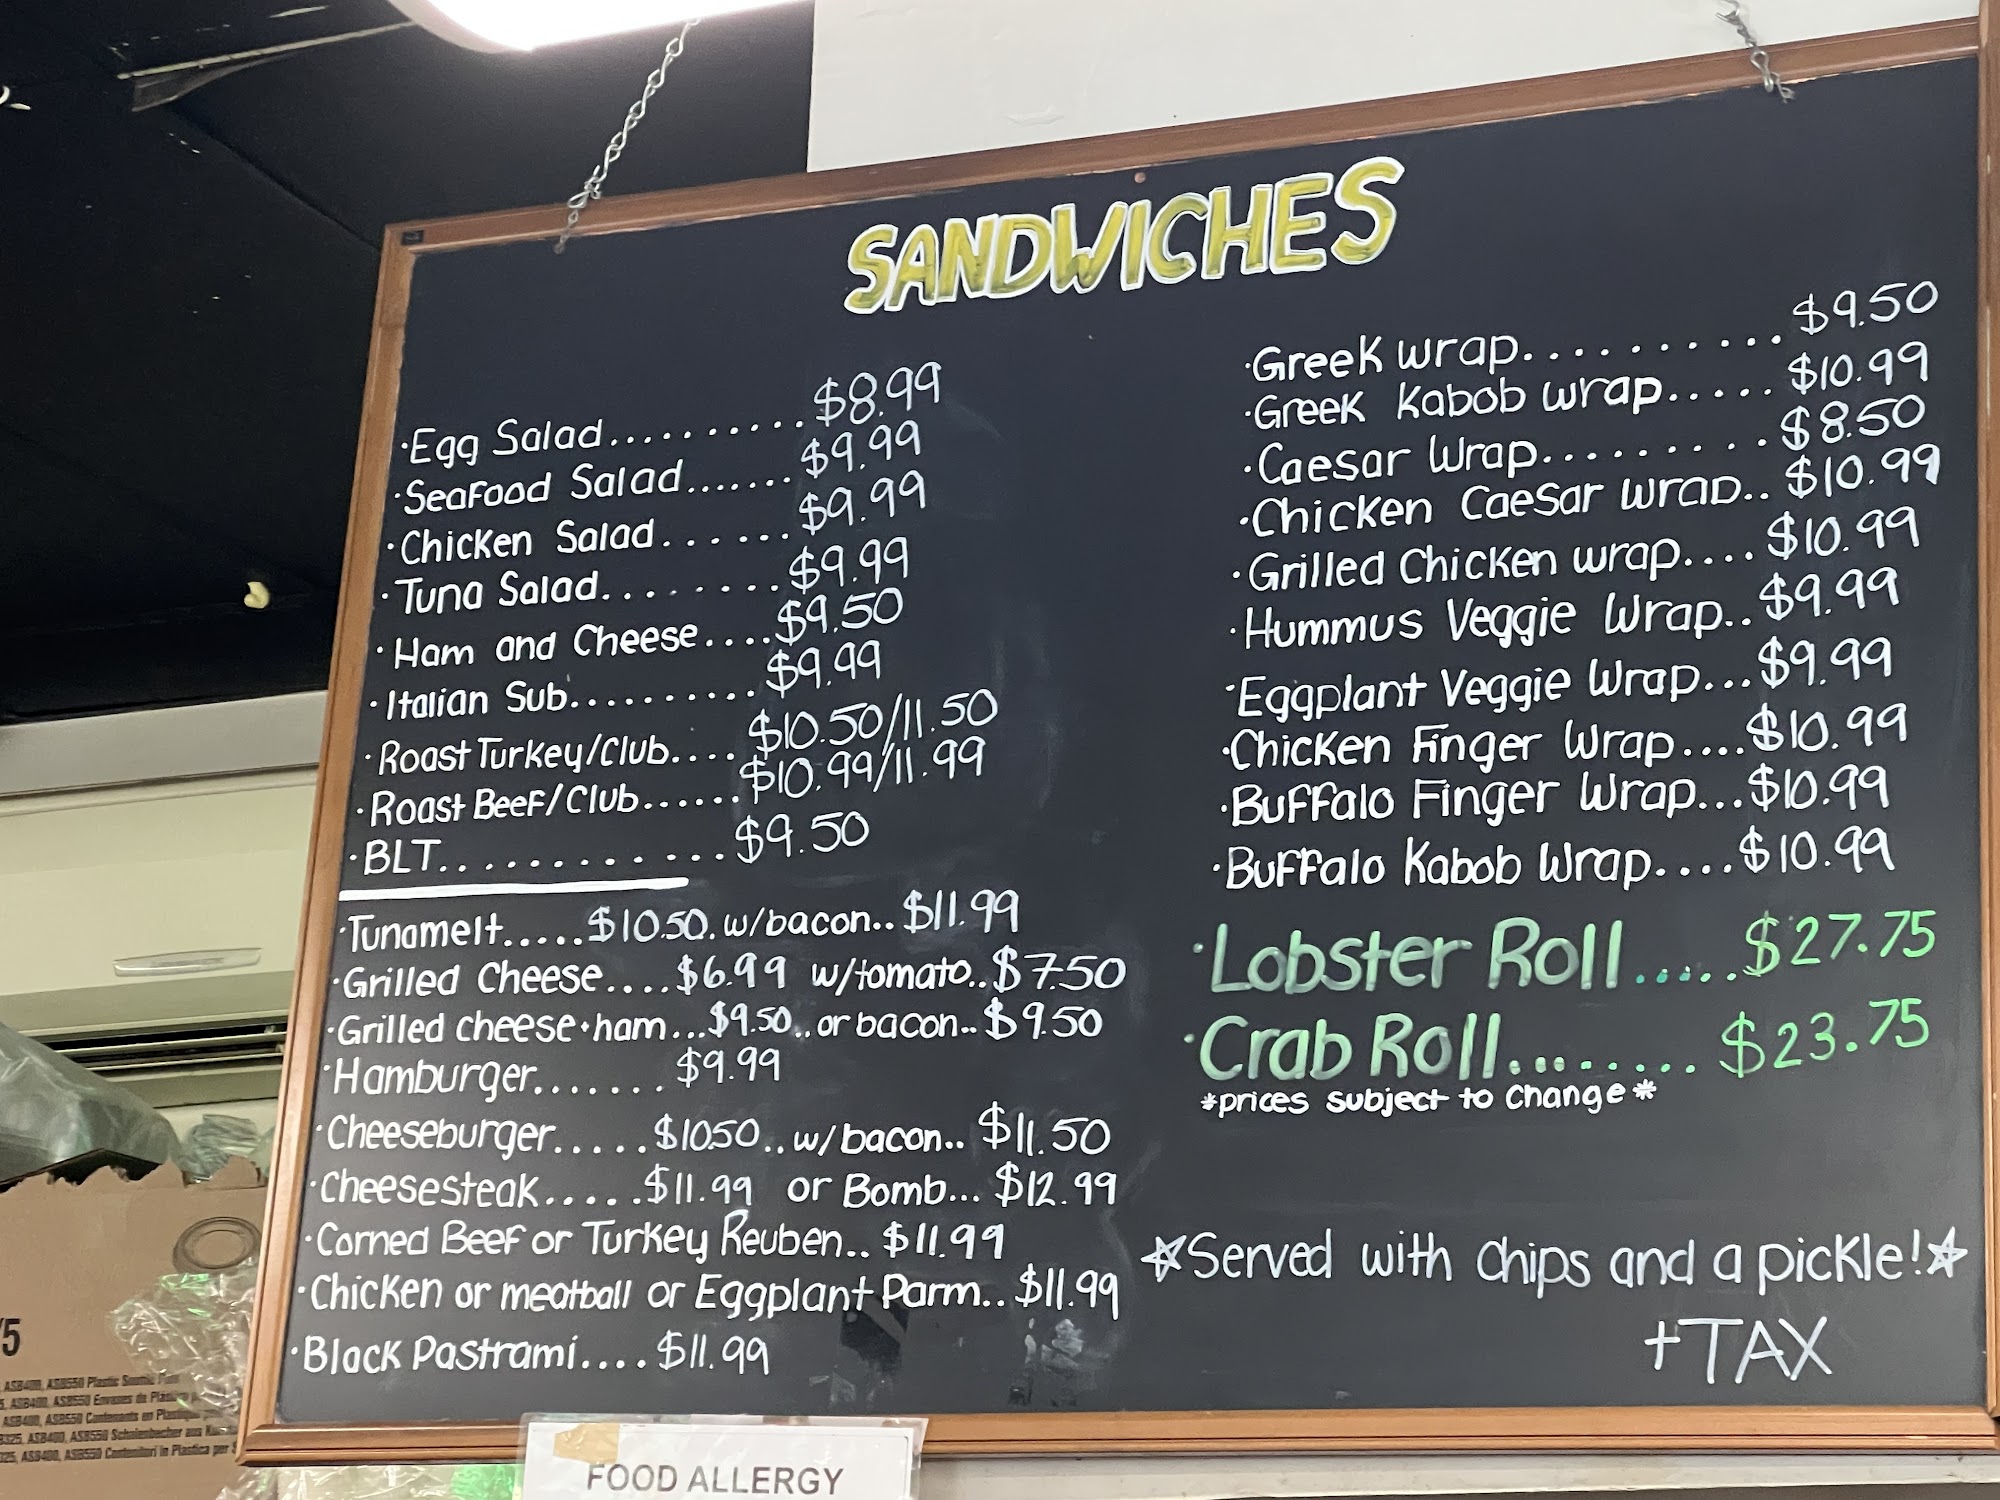 SANDWICHES
·Egg Salad..........$8.99
·Seafood Salad.......$9.99
·Chicken Salad......$9.99
·Tuna Salad........$9.99
·Ham and Cheese....$9.50
·Italian Sub..........$9.99
·Roast Turkey/Club....$10.50/11.50
·Roast Beef/Club......$10.99/11.99
·BLT...........$9.50
·Tunamelt.....$10.50. w/bacon..$11.99
·Grilled Cheese....$6.99 w/tomato..$7.50
·Grilled cheese+ham...$9.50..or bacon..$9.50
·Hamburger.......$9.99
·Cheeseburger.....$10.50..w/bacon..$11.50
·Cheesesteak.....$11.99 or Bomb...$12.99
·Corned Beef or Turkey Reuben..$11.99
·Chicken or meatball or Eggplant Parm..$11.99
·Black Pastrami....$11.99
·Greek wrap..........$9.50
·Greek Kabob wrap.....$10.99
·Caesar Wrap.........$8.50
·Chicken Caesar wrap..$10.99
·Grilled Chicken wrap....$10.99
·Hummus Veggie Wrap..$9.99
·Eggplant Veggie Wrap...$9.99
·Chicken Finger Wrap....$10.99
·Buffalo Finger Wrap...$10.99
·Buffalo Kabob Wrap....$10.99
·Lobster Roll.....$27.75
·Crab Roll........$23.75
*prices subject to change*
☆Served with chips and a pickle!☆
+TAX
FOOD ALLERGY